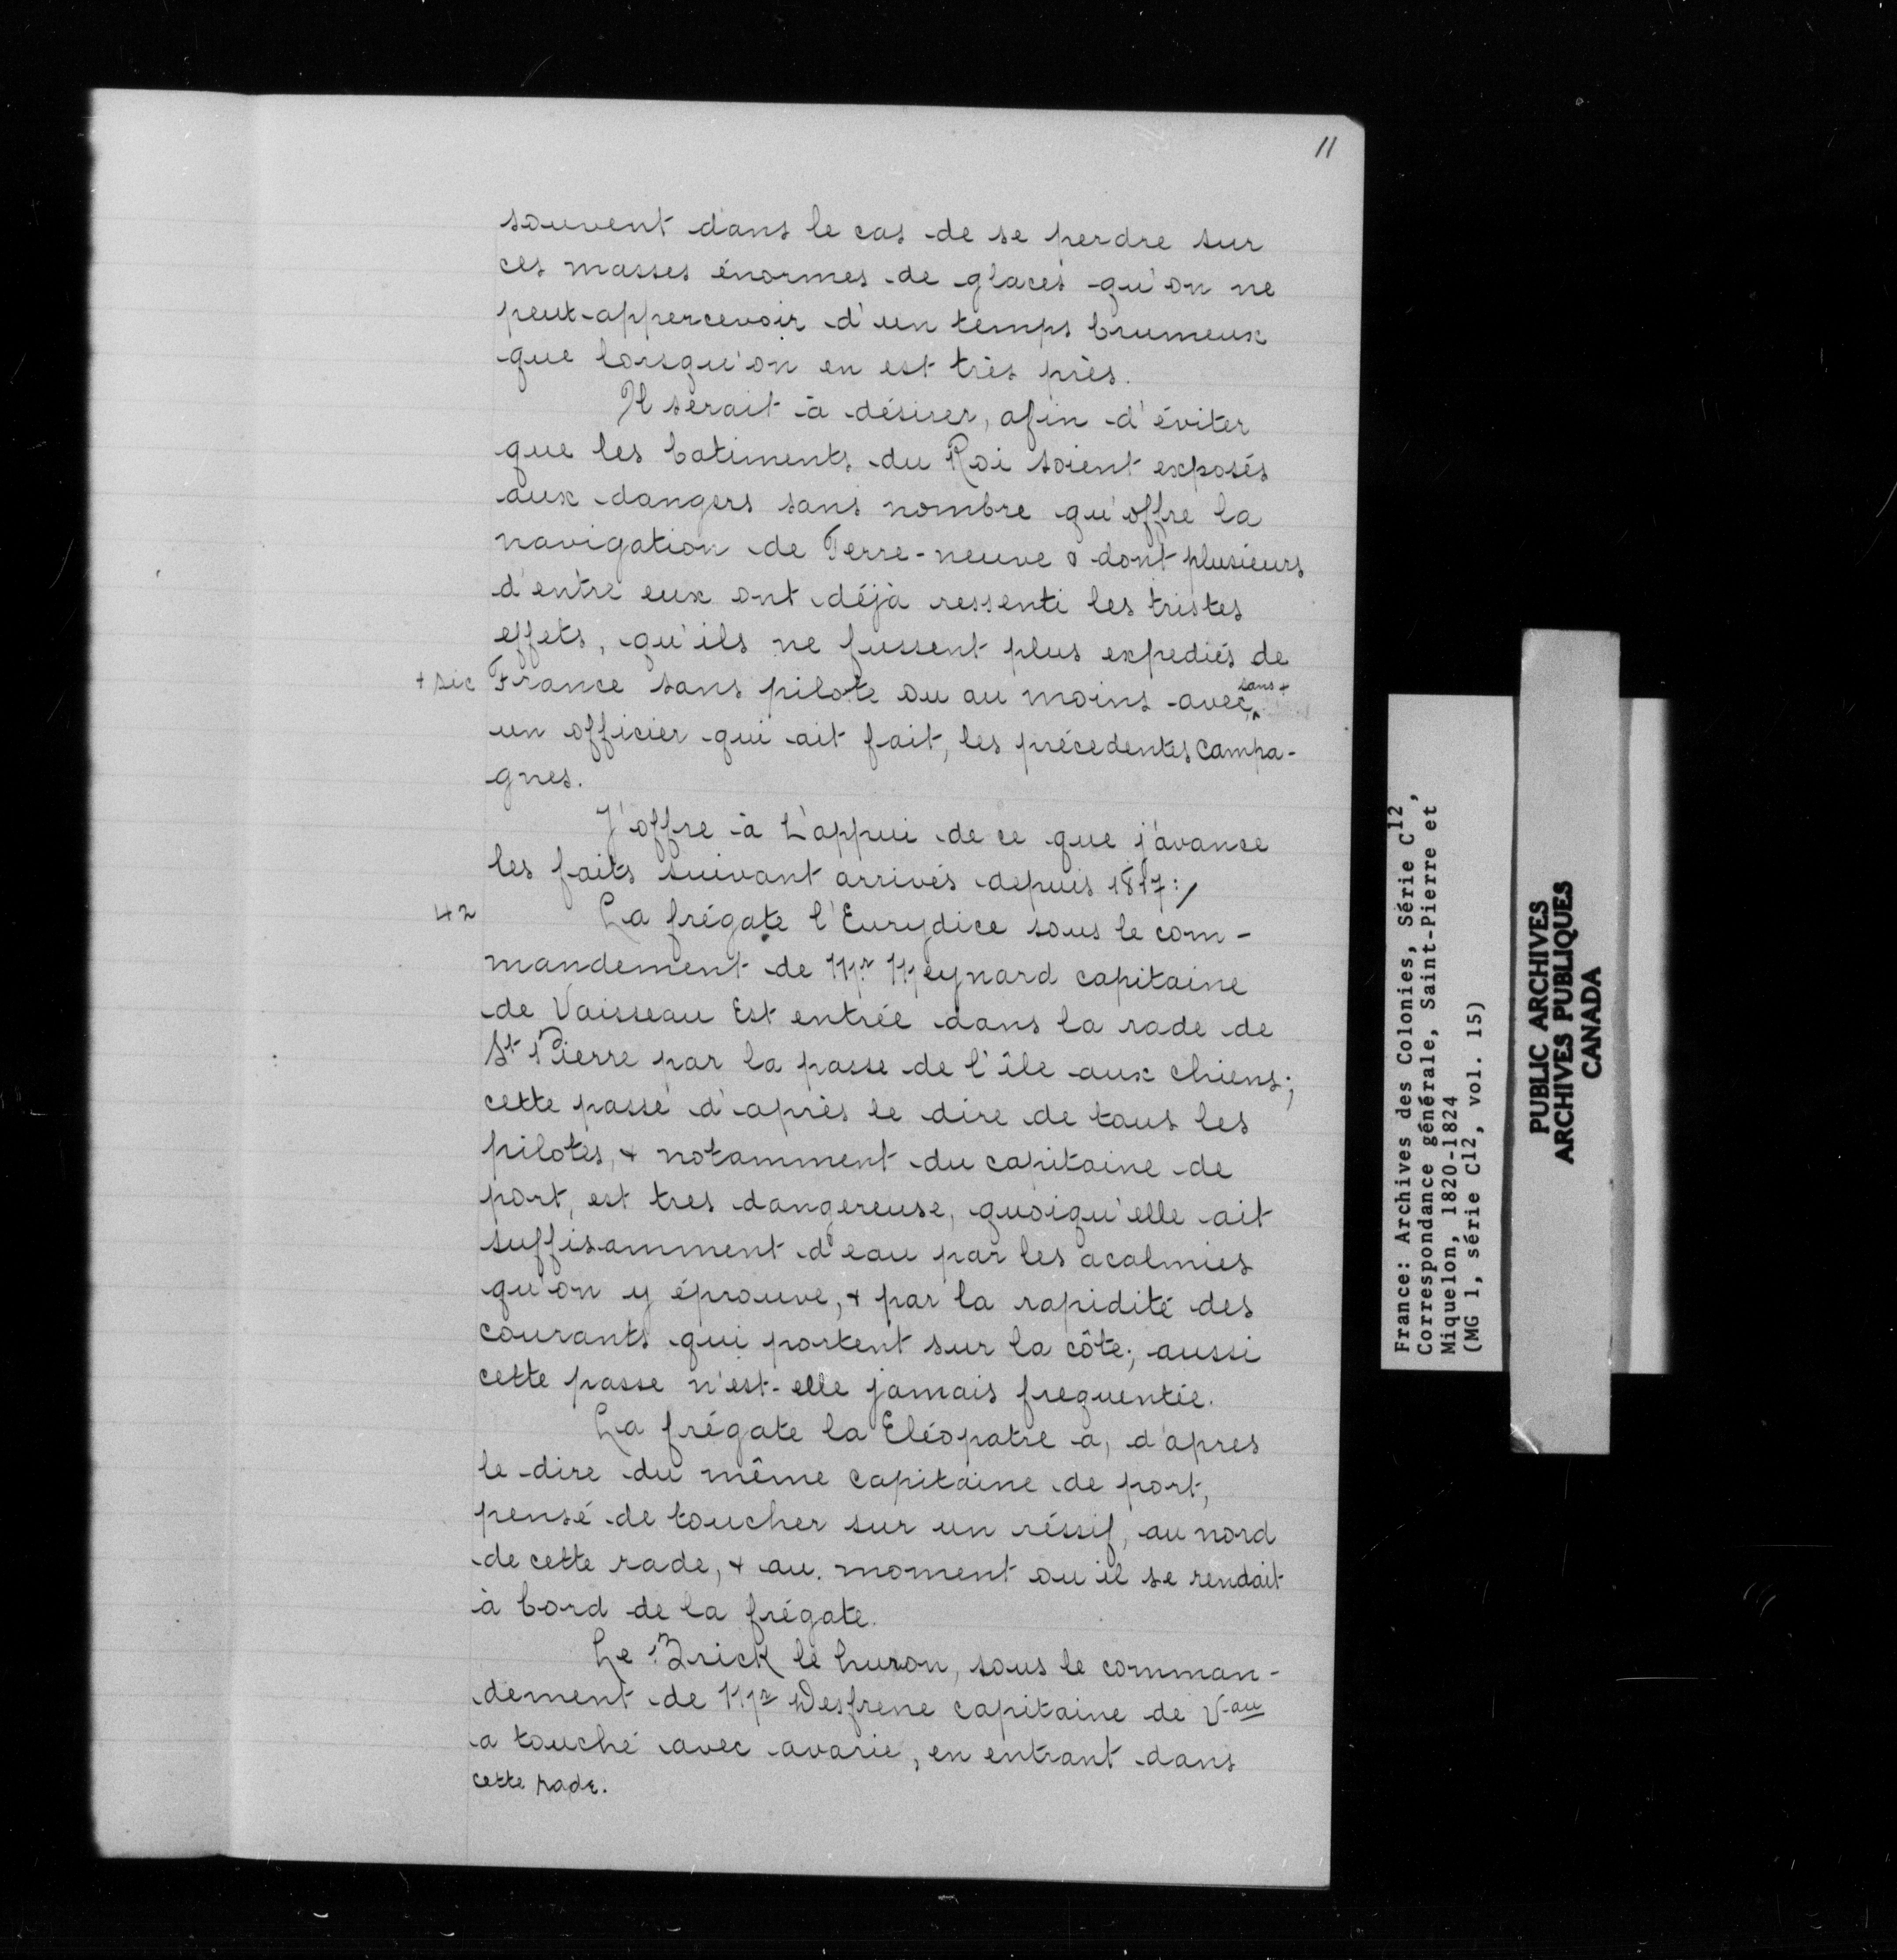 11
souvent dans le cas de se perdre sur
ces masses énormes de glaces qu'on ne
peut appercevoir d'un temps brumeux
que lorsqu'on en est très près.
Il serait à désirer, afin d'éviter
que les batiments du Roi soient exposés
aux dangers sans nombre qu'offre la
navigation de Terre-neuve & dont plusieurs
d'entre eux ont déjà ressenti les tristes
effets, qu'ils ne fussent plus expediés de
+ sic France sans pilote ou au moins avec sans +
un officier qui ait fait, les précedentes campa-
gnes.
J'offre à L'appui de ce que j'avance
les faits suivant arrivés depuis 1817:/
42 La frégate l'Eurydice sous le com-
mandement de Mr. Meynard capitaine
de Vaisseau Est entrée dans la rade de
St Pierre par la passe de l'île aux chiens;
cette passe d'après le dire de tous les
pilotes, & notamment du capitaine de
port, est tres dangereuse, quoiqu'elle ait
suffisamment d'eau par les acalmies
qu'on y éprouve, & par la rapidité des
courants qui portent sur la côte; aussi
cette passe n'est-elle jamais frequentée.
La frégate la Cléopatre a, d'apres
le dire du même capitaine de port,
pensé de toucher sur un réssif, au nord
de cette rade, & au moment ou il se rendait
à bord de la frégate.
Le Brick le huron, sous le comman-
dement de Mr Desfrene capitaine de Vau
a touché avec avarie, en entrant dans
cette rade.
France: Archives des Colonies, Série C12,
Correspondance générale, Saint-Pierre et
Miquelon, 1820-1824
(MG 1, série C12, vol. 15)
PUBLIC ARCHIVES
ARCHIVES PUBLIQUES
CANADA